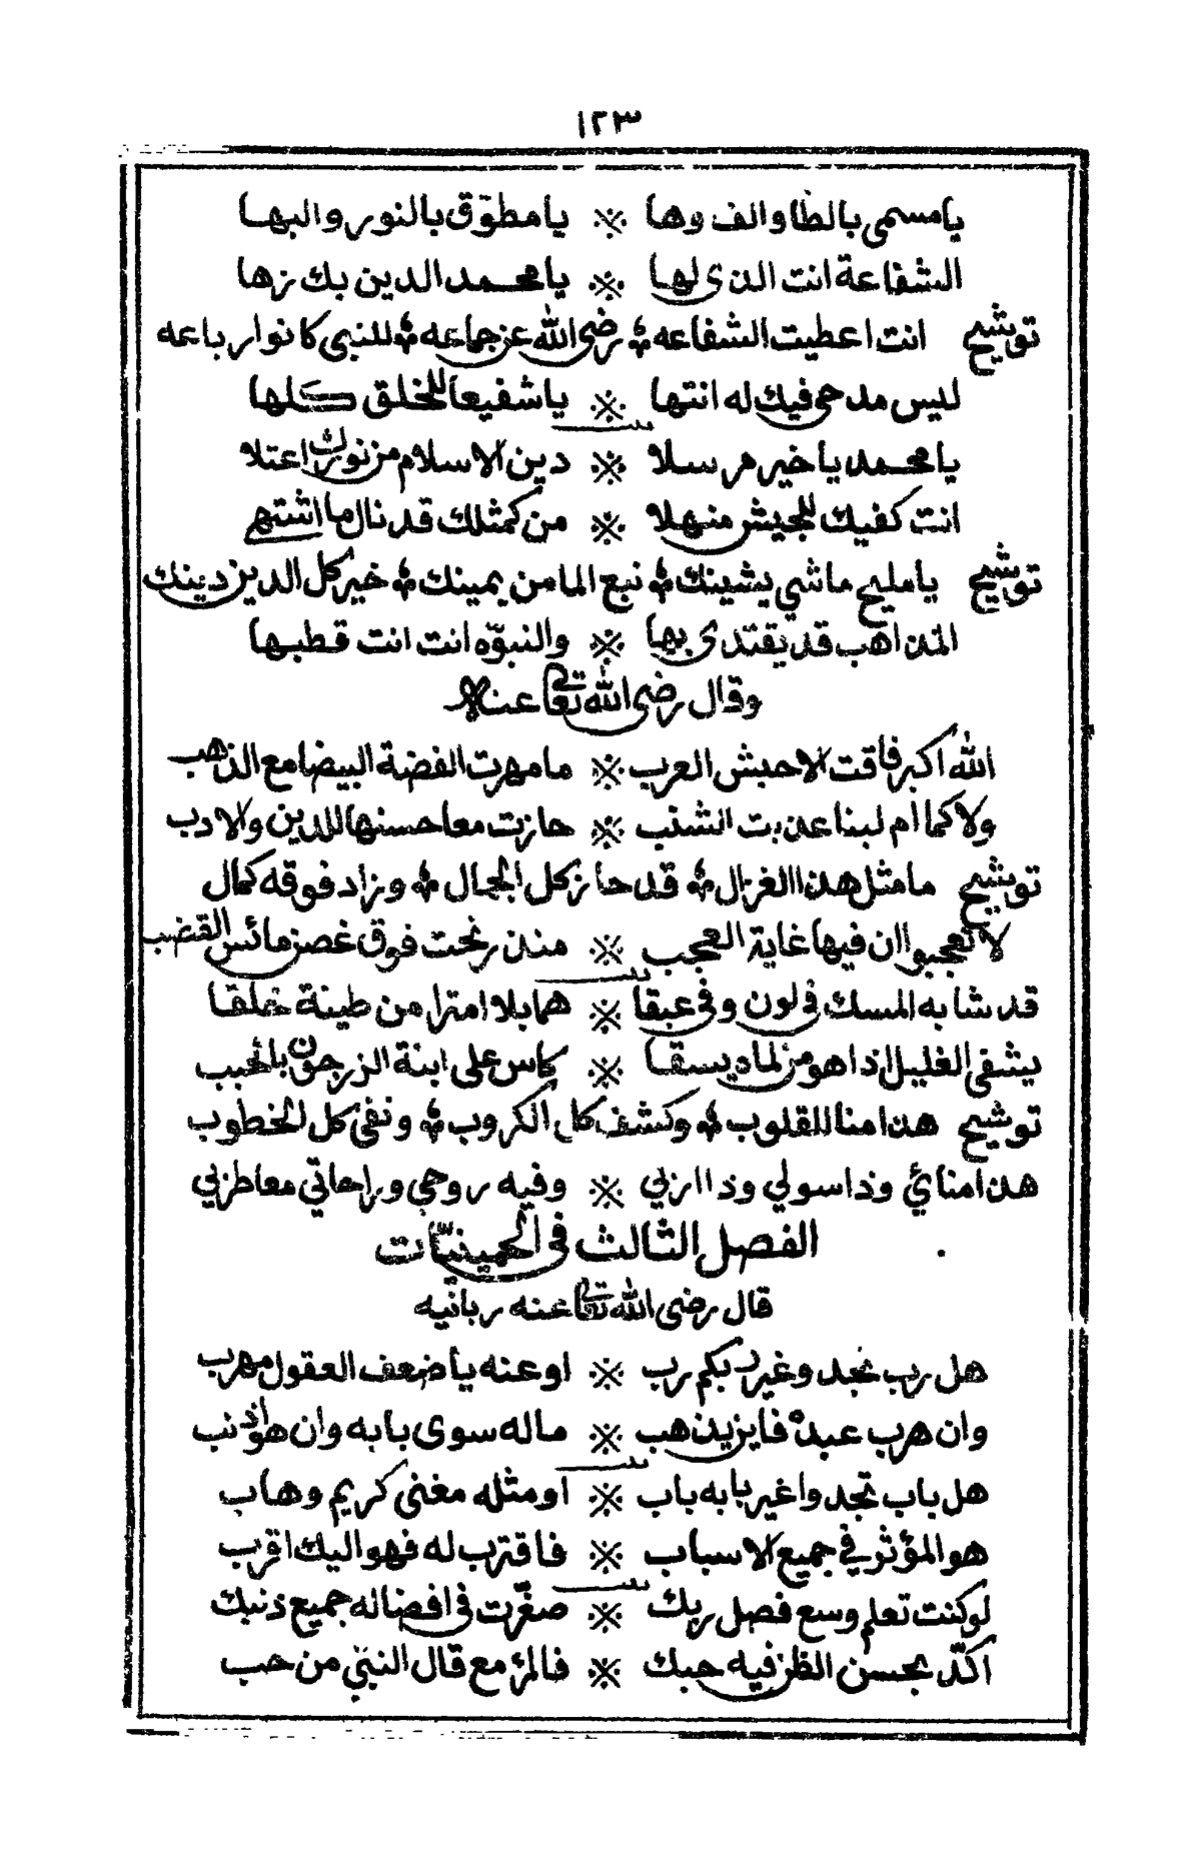 ١٢٣
يا مسمى بالطا والف وها ※ يا مطوّق بالنور والبها
الشفاعة انت الذى لها ※ يا محمد الدين بك زها
توشيح انت اعطيت الشفاعه ؛ رضى الله عن جماعه ؛ للنبى كانوا رباعه
ليس مدحى فيك له انتها ※ يا شفيعا للخلق كلها
يا محمد يا خير مرسلا ※ دين الاسلام من نورك اعتلا
انت كفيك للجيش منهلا ※ من كمثلك قد نال ما اشتهى
توشيح يا مليح ما شي يشينك ؛ نبع الما من يمينك ؛ خير كل الدين دينك
المذاهب قد يقتدى بها ※ والنبوّه انت انت قطبها
وقال رضى الله تعالى عنه
الله اكبر فاقت الاحبش العرب ※ ما مهرت الفضة البيضا مع الذهب
ولا كما ام لبنا عذبت الشنب ※ حازت معا حسنها للدين والادب
توشيح ما مثل هذا الغزال ؛ قد حاز كل الجمال ؛ وزاد فوقه كمال
لا تعجبوا ان فيها غاية العجب ※ منذ رنحت فوق غصن مائس القضب
قد شابه المسك فى لون وفى عبقا ※ هما بلا امترا من طينة خلقا
يشفى الغليل اذا هو من لماد يسقا ※ كاس على ابنة الزرجون بالحبب
توشيح هذا منا للقلوب ؛ وكشف كل الكروب ؛ ونفى كل الخطوب
هذا منائي وذا سولي وذا اربي ※ وفيه روحي وراحاتي معا طربي
الفصل الثالث فى الحمينيّات
قال رضى الله تعالى عنه ربانيه
هل رب تجد وغير ربكم رب ※ او عنه يا ضعف العقول مهرب
وان هرب عبده فاين يذهب ※ ماله سوى بابه وان هو اذنب
هل باب تجدوا غير بابه باب ※ او مثله مغنى كريم وهاب
هو المؤثر في جميع الاسباب ※ فاقترب له فهو اليك اقرب
لو كنت تعلم وسع فضل ربك ※ صغّرت فى افضاله جميع ذنبك
اكّد بحسن الظن فيه حبك ※ فالمرؤ مع قال النبي من حب